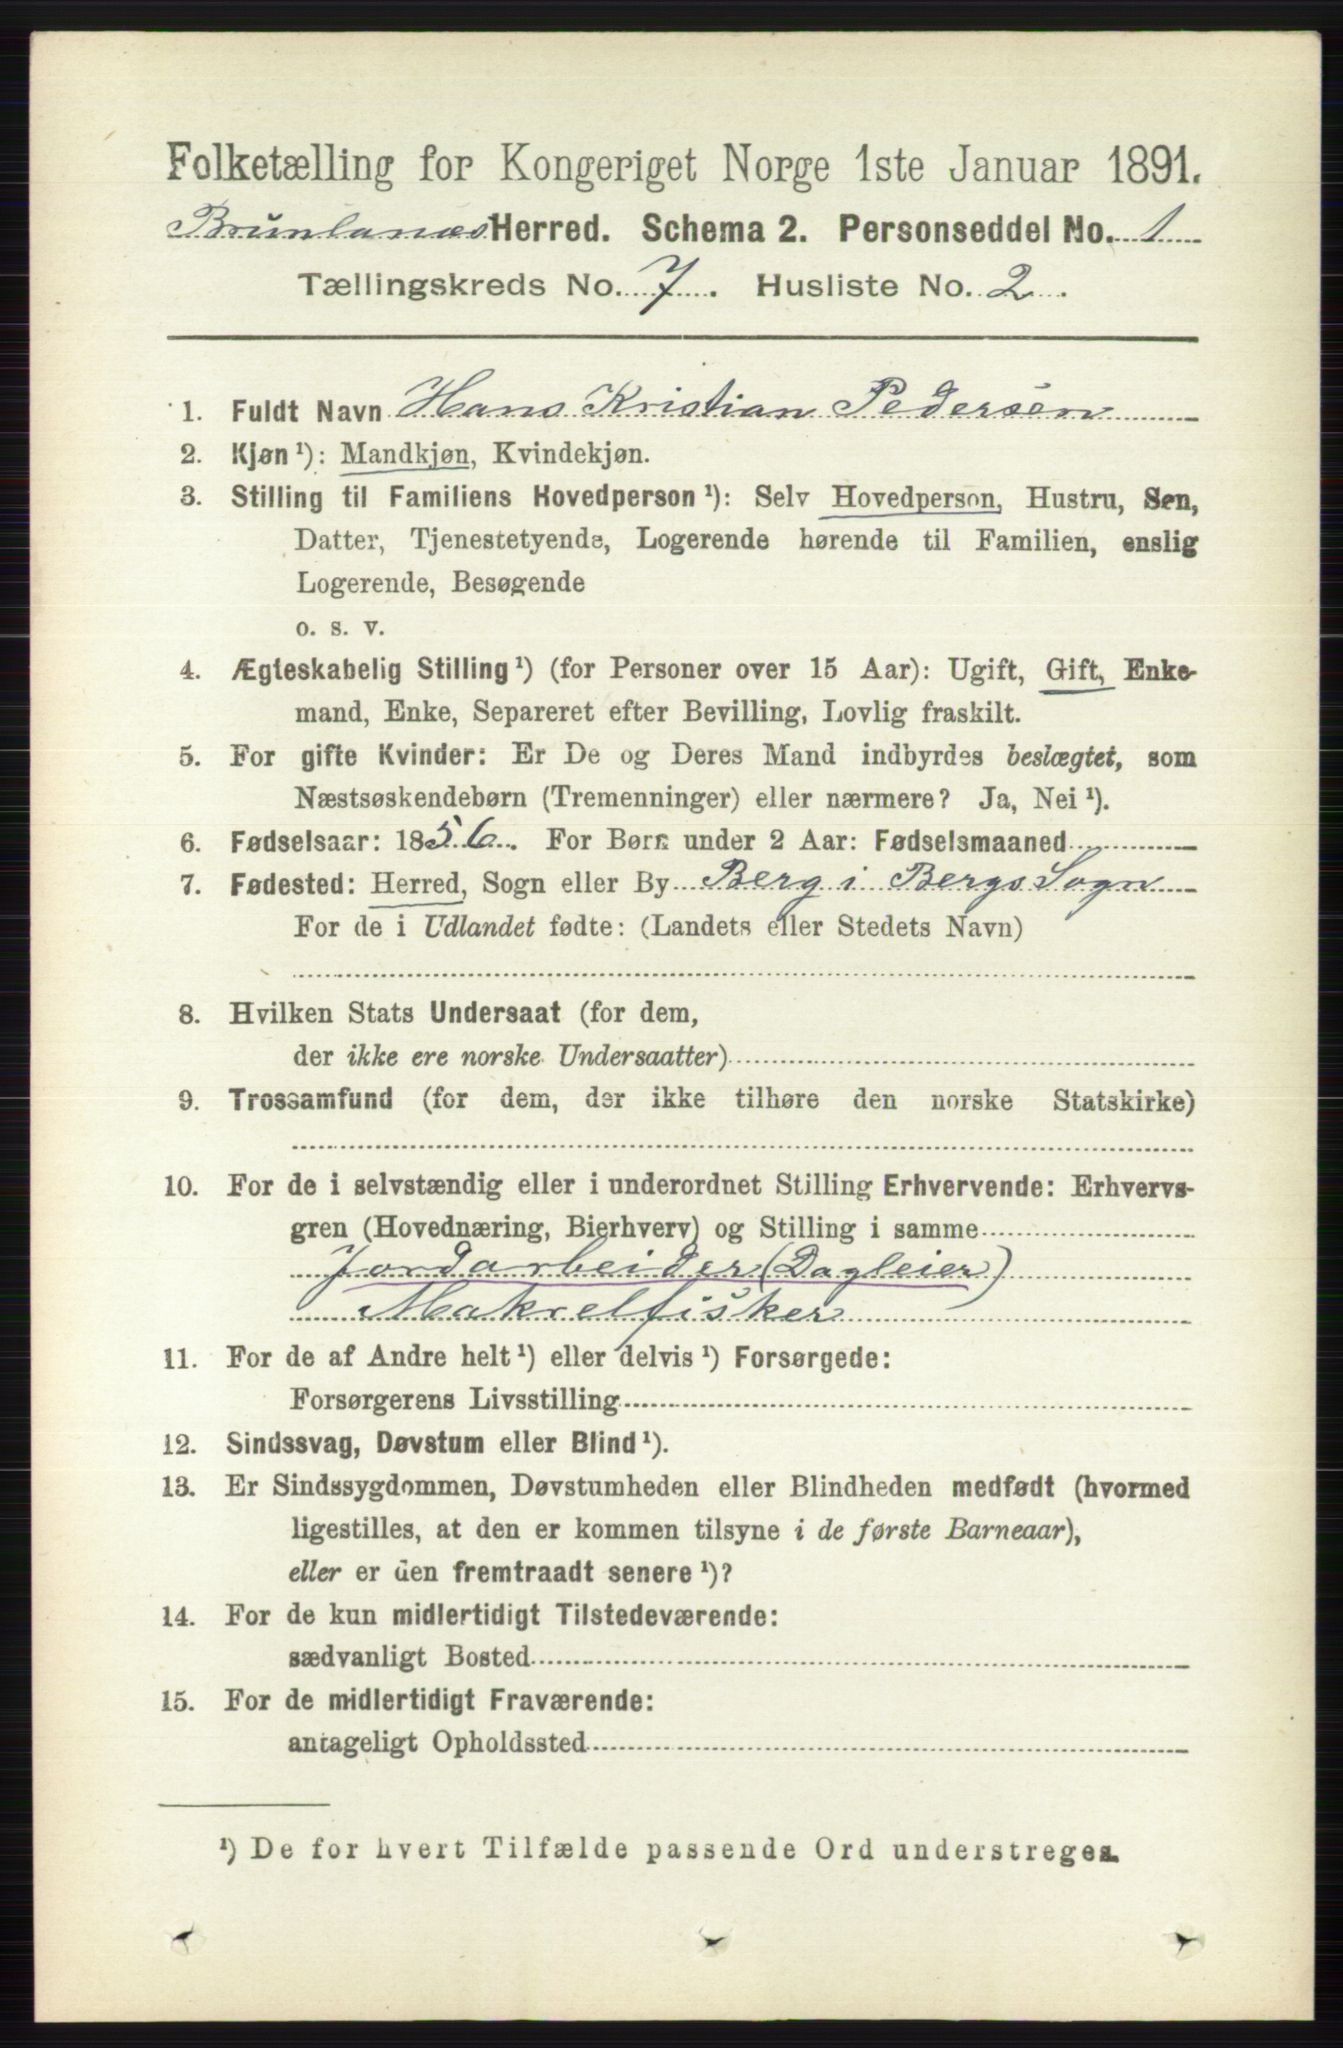 Folketælling for Kongeriget Norge 1ste Januar 1891.
Brunlanæs Herred. Schema 2. Personseddel No. 1
Tællingskreds No. 7. Husliste No. 2.
1. Fuldt Navn Hans Kristian Pedersen
2. Kjøn ¹): Mandkjøn, Kvindekjøn.
3. Stilling til Familiens Hovedperson ¹): Selv Hovedperson, Hustru, Søn,
Datter, Tjenestetyende, Logerende hørende til Familien, enslig
Logerende, Besøgende
o. s. v.
4. Ægteskabelig Stilling ¹) (for Personer over 15 Aar): Ugift, Gift, Enke-
mand, Enke, Separeret efter Bevilling, Lovlig fraskilt.
5. For gifte Kvinder: Er De og Deres Mand indbyrdes beslægtet, som
Næstsøskendebørn (Tremenninger) eller nærmere? Ja, Nei ¹).
6. Fødselsaar: 1856. For Børn under 2 Aar: Fødselsmaaned
7. Fødested: Herred, Sogn eller By Berg i Bergs Sogn
For de i Udlandet fødte: (Landets eller Stedets Navn)
8. Hvilken Stats Undersaat (for dem,
der ikke ere norske Undersaatter)
9. Trossamfund (for dem, der ikke tilhøre den norske Statskirke)
10. For de i selvstændig eller i underordnet Stilling Erhvervende: Erhvervs-
gren (Hovednæring, Bierhverv) og Stilling i samme
Jordarbeider (Dagleier)
Makrelfisker
11. For de af Andre helt ¹) eller delvis ¹) Forsørgede:
Forsørgerens Livsstilling
12. Sindssvag, Døvstum eller Blind ¹).
13. Er Sindssygdommen, Døvstumheden eller Blindheden medfødt (hvormed
ligestilles, at den er kommen tilsyne i de første Barneaar),
eller er den fremtraadt senere ¹)?
14. For de kun midlertidigt Tilstedeværende:
sædvanligt Bosted
15. For de midlertidigt Fraværende:
antageligt Opholdssted
¹) De for hvert Tilfælde passende Ord understreges.